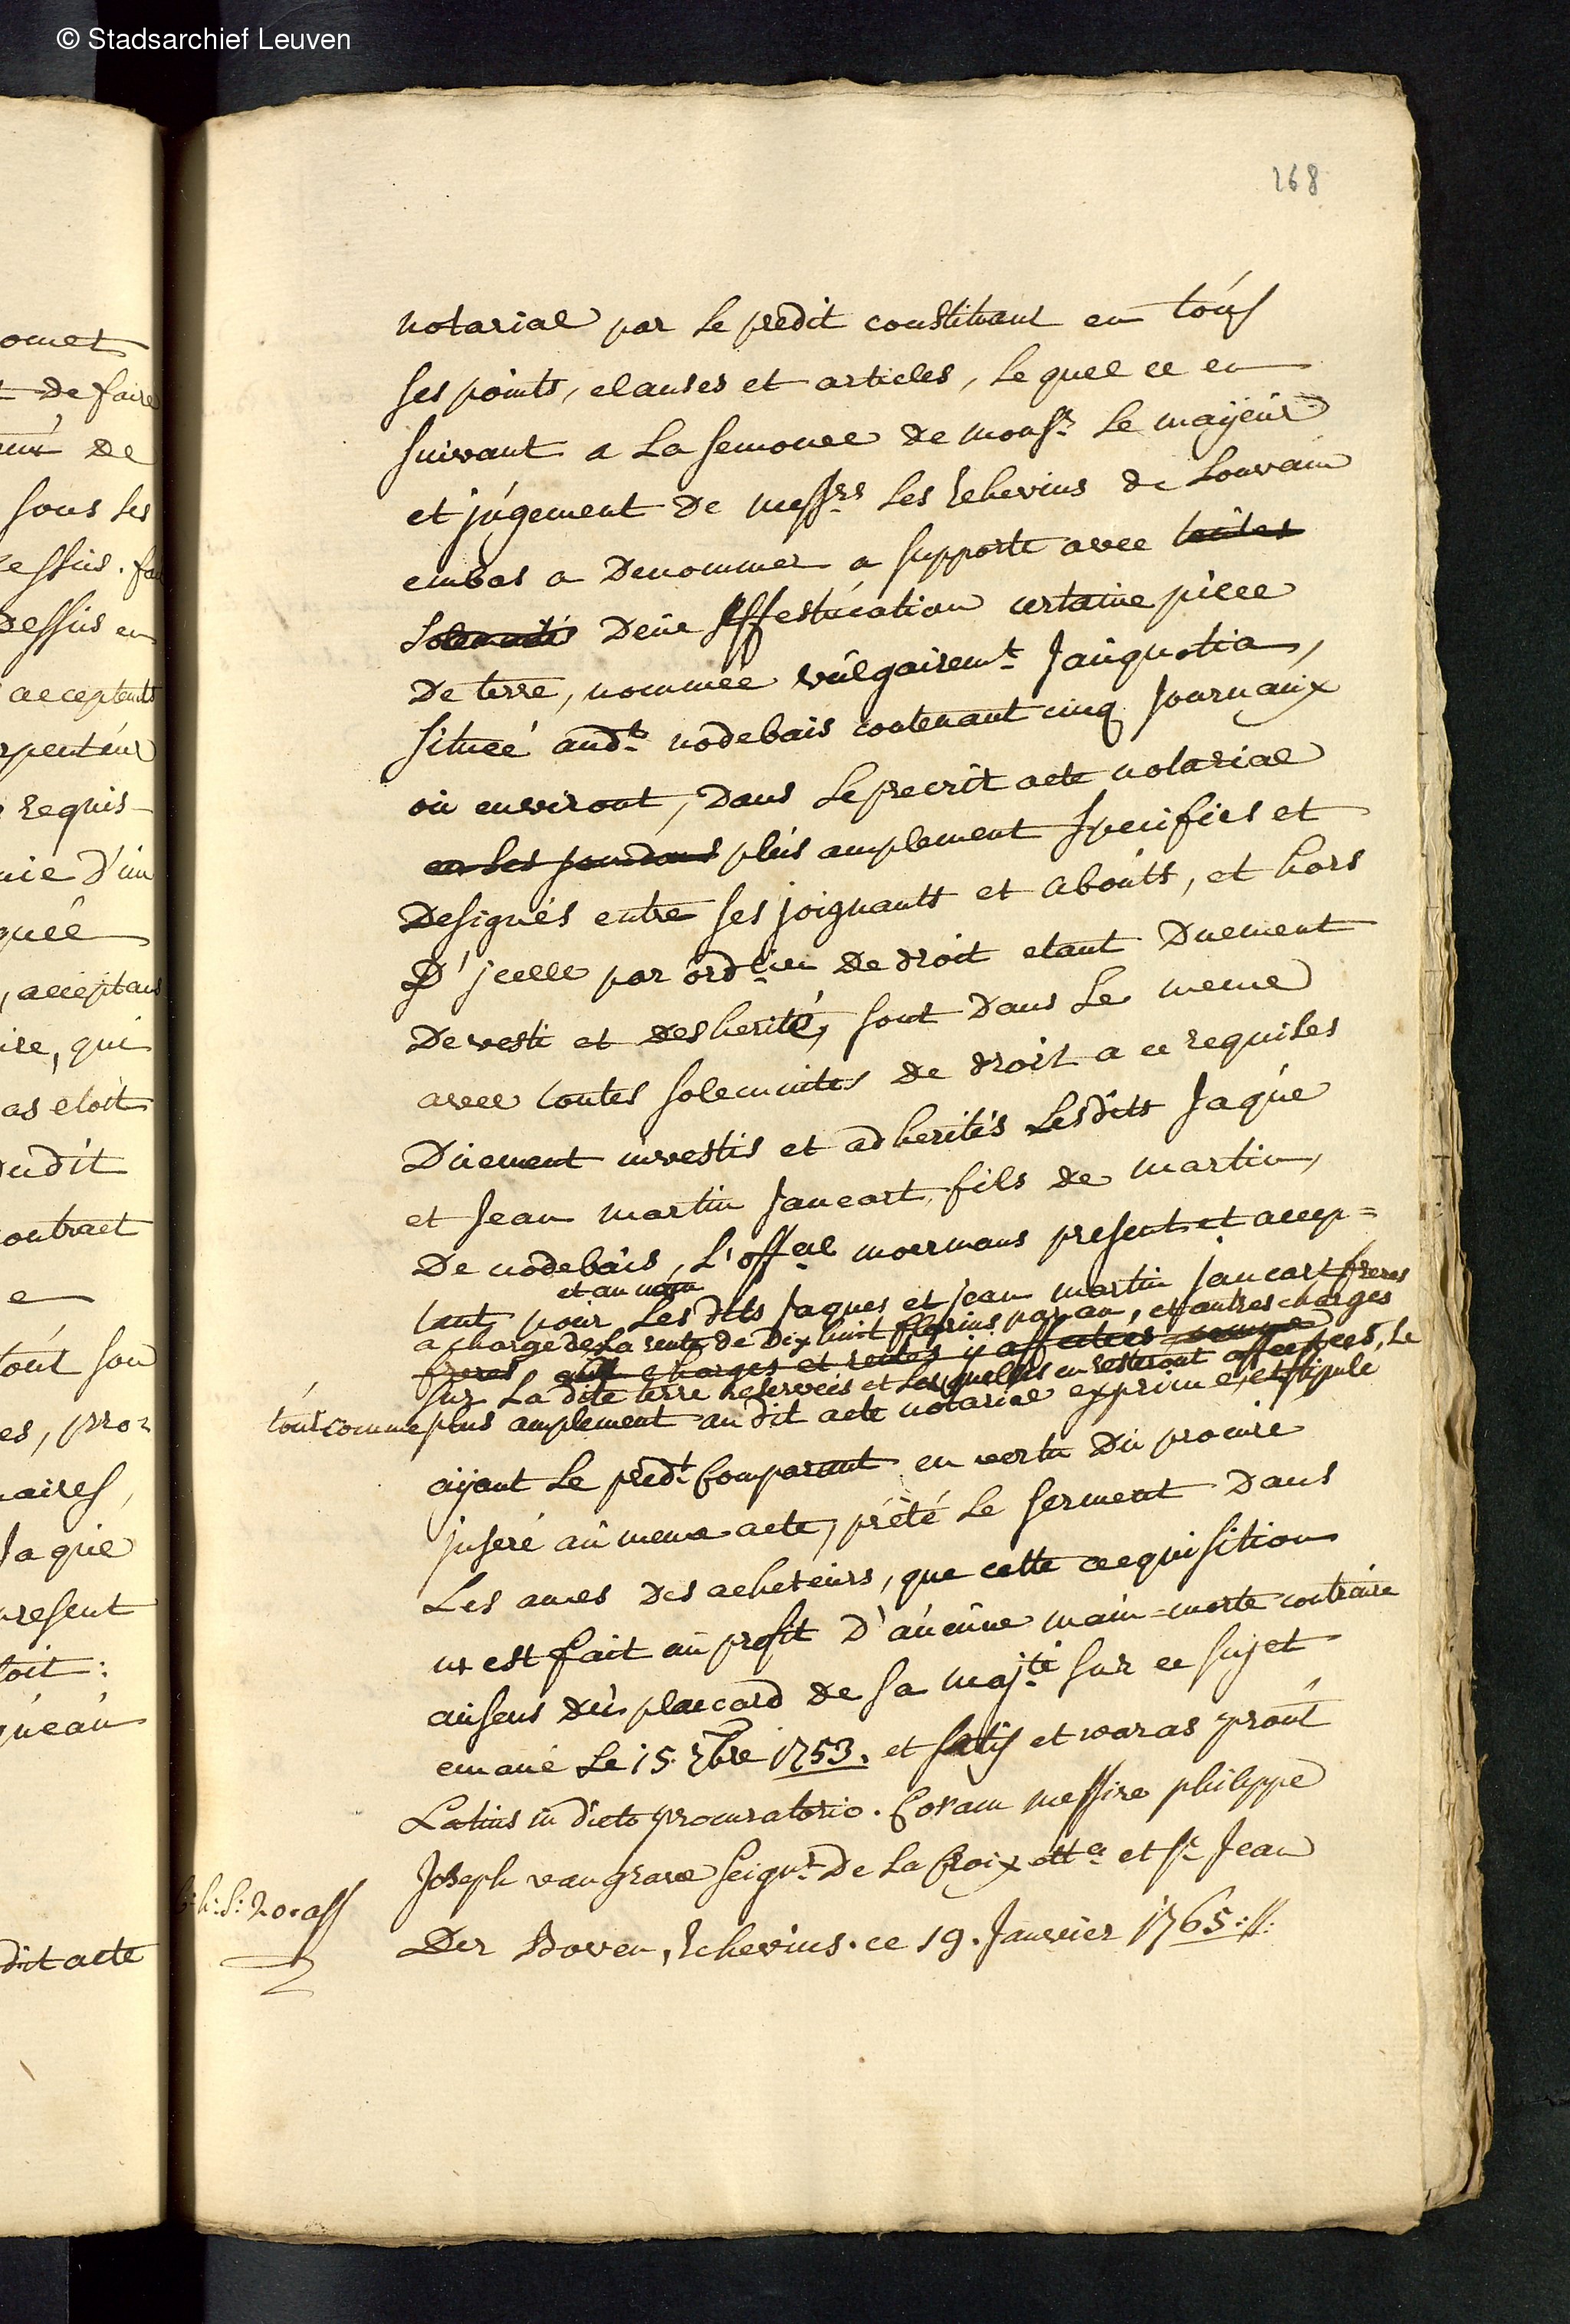 © Stadsarchief Leuven
168
omet
t de faire
de
sous les
dessus en
acceptents
requis
d'un
, acceptans
ire, qui
as etoit
dudit
contract
e
tout son
es, pro=
naires,
Jaque
present
toit:
dit acte
notarial par le predit constituant en tous
ses points, clauses et articles, le quel ce en
suivant a la semonce de monsr. le mayeur
et jugement de messrs. les Echevins de Louvain
embas a denommer a supporté avec toutes
solemnités deüe effestucation certaine piece
de terre, nommée vulgairemt. Jauquotia,
située audt. nodebais contenant cinq journaux
ou environt, dans le precrit acte notarial
plus amplement specifiés et
designés entre ses joignants et abouts, et hors
D'jcelle par ord.ice de droit etant Duement
Devesti et desherité, sont dans le meme
avec toutes solemnites de droit a ce requises
Duement investis et adherités Lesdits Jaque
et Jean martin Jancart, fils de martin,
De nodebais, L'offal moermans present et accep=
et au nom
tant pour Lesdits Jaques et jean martin jancart freres
a charge de La rente de Dix huit florins par an, et autres charges
freres aux charges et rentes y affectées comme
sur La dite terre reservées et Lesquelles en resteront affectées, Le
tout comme plus amplement au dit acte notarial exprimé, et stipulé
aÿant le predt. Comparant en vertu du procure
jnseré au meme acte, prété le serment Dans
Les ames des acheteurs, que cette acquisition
n'est fait au profit D'aucune main=morte contraire
au sens du placcard de sa majté sur ce sujet
emané le 15. 7bre 1753. et satis et waras prout
Latius in dicto procuratorio. Coram messire philippe
Joseph van grave seignr. De la Croix etta et sr. Jean
Der Boven, Echevins. ce 19. Janvier 1765://: